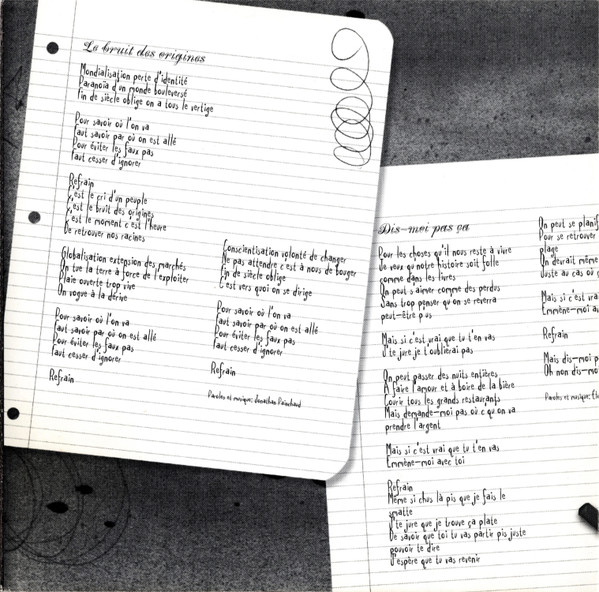 Le bruit des origines
Mondialisation perte d'identité
Paranoïa d'un monde bouleversé
Fin de siècle oblige on a tous le vertige
Pour savoir où l'on va
Faut savoir par où on est allé
Pour éviter les faux pas
Faut cesser d'ignorer
Refrain
C'est le cri d'un peuple
C'est le bruit des origines
C'est le moment c'est l'heure
De retrouver nos racines
Globalisation extension des marchés
On tue la terre à force de l'exploiter
Plaie ouverte trop vive
On vogue à la dérive
Pour savoir où l'on va
Faut savoir par où on est allé
Pour éviter les faux pas
Faut cesser d'ignorer
Refrain
Conscientisation volonté de changer
Ne pas attendre c'est à nous de bouger
Fin de siècle oblige
C'est vers quoi on se dirige
Pour savoir où l'on va
Faut savoir par où on est allé
Pour éviter les faux pas
Faut cesser d'ignorer
Refrain
Paroles et musique: Jonathan Painchaud
Dis-moi pas ça
Pour les choses qu'il nous reste à vivre
Je veux qu'notre histoire soit folle
comme dans les livres
On peut s'aimer comme des perdus
Sans trop penser qu'on se reverra
peut-être plus
Mais si c'est vrai que tu t'en vas
J'te jure je t'oublierai pas
On peut passer des nuits entières
À faire l'amour et à boire de la bière
Courir tous les grands restaurants
Mais demande-moi pas où c'qu'on va
prendre l'argent
Mais si c'est vrai que tu t'en vas
Emmène-moi avec toi
Refrain
Même si chus là pis que je fais le
smatte
J'te jure que je trouve ça plate
De savoir que toi tu vas partir pis juste
pouvoir te dire
J'espère que tu vas revenir
On peut se planif
Pour se retrouver
plage
On devrait même
Juste au cas où
Mais si c'est vra
Emmène-moi av
Refrain
Mais dis-moi p
Oh non dis-mo
Paroles et musique: Él